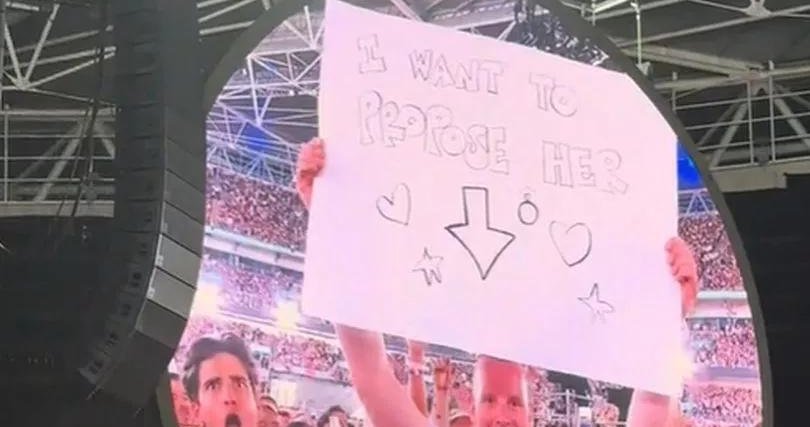 I WANT TO
PROPOSE HER